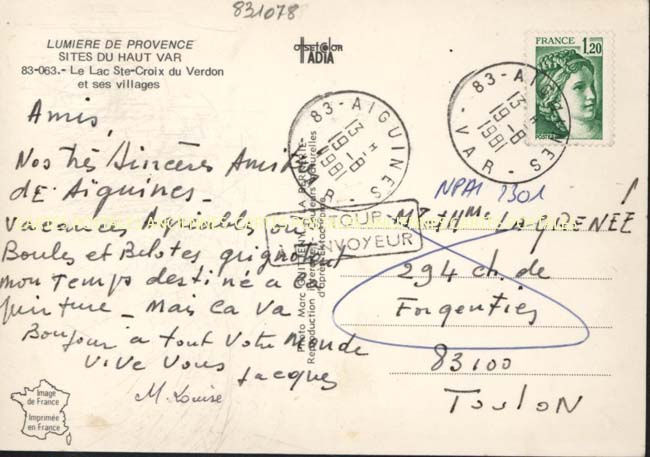 831078
LUMIERE DE PROVENCE
SITES DU HAUT VAR
83-063.- Le Lac Ste-Croix du Verdon
et ses villages
ADIA
FRANCE
1,20
POSTES
83 - AIGUINES
13 H
19 - 8
1981
VAR
83 - AIGUINES
13 H
19 - 8
1981
VAR
Amis,
Nos très Sincères Amitiés
de Aiguines -
Vacances Agréables
Boules et Belotes grignotent
mon Temps destiné à la
peinture - Mais ça va
Bonjour à tout votre Monde
Vive Vous
Jacques
M. Louise
RETOUR
ENVOYEUR
Photo Marc
Reproduction interdite Couleurs Naturelles
NPAI 1301
Mr et Mme LAGRENEE
294 ch. de
Forgentier
83100
Toulon
Image
de France
Imprimée
en France